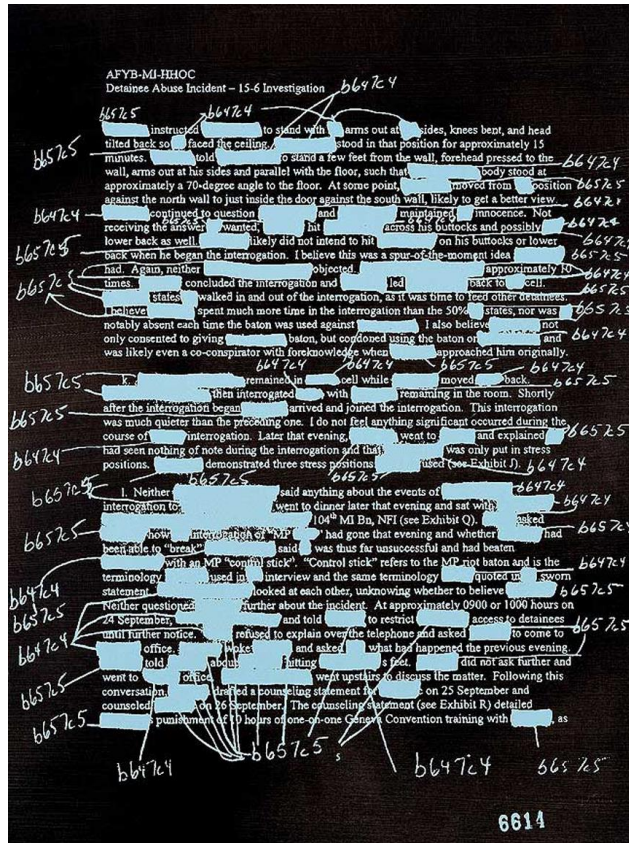 AFYB-MI-HHOC
Detainee Abuse Incident – 15-6 Investigation b647c4
b657c5 b647c4
instructed to stand with arms out at sides, knees bent, and head
b657c5 tilted back so faced the ceiling. stood in that position for approximately 15
minutes. told to stand a few feet from the wall, forehead pressed to the b647c4
wall, arms out at his sides and parallel with the floor, such that body stood at
approximately a 70-degree angle to the floor. At some point, moved from position b657c5
against the north wall to just inside the door against the south wall, likely to get a better view.
b647c4 continued to question and maintained innocence. Not
receiving the answer wanted, hit across his buttocks and possibly b647c4
b657c5 lower back as well. likely did not intend to hit on his buttocks or lower b647c4
back when he began the interrogation. I believe this was a spur-of-the-moment idea b657c5
had. Again, neither objected. approximately 10
b657c5 times. concluded the interrogation and led back to cell. b647c4
states walked in and out of the interrogation, as it was time to feed other detainees. b657c5
I believe spent much more time in the interrogation than the 50% states, nor was b657c5
notably absent each time the baton was used against I also believe not
only consented to giving baton, but condoned using the baton on and b647c4
was likely even a co-conspirator with foreknowledge when approached him originally.
b647c4 b647c4 b657c5 b647c4
b657c5 k. remained in cell while moved back. b657c5
then interrogated with remaining in the room. Shortly
b657c5 after the interrogation began arrived and joined the interrogation. This interrogation
was much quieter than the preceding one. I do not feel anything significant occurred during the
course of interrogation. Later that evening, went to and explained b657c5
b647c4 had seen nothing of note during the interrogation and that was only put in stress
positions. demonstrated three stress positions used (see Exhibit J). b647c4
b657c5 b657c5 b657c5
l. Neither said anything about the events of b647c4
interrogation to went to dinner later that evening and sat with b647c4
104th MI Bn, NFI (see Exhibit Q). asked
b657c5 how interrogation of "MP had gone that evening and whether had b657c4
been able to "break" said was thus far unsuccessful and had beaten
with an MP "control stick". "Control stick" refers to the MP riot baton and is the
b647c4 terminology used in interview and the same terminology quoted in sworn b647c4
statement. looked at each other, unknowing whether to believe b657c5
b657c5 Neither questioned further about the incident. At approximately 0900 or 1000 hours on
24 September, and told to restrict access to detainees
b647c4 until further notice. refused to explain over the telephone and asked to come to b657c5
office. woke and asked what had happened the previous evening.
told about hitting s feet. did not ask further and
b657c5 went to office. went upstairs to discuss the matter. Following this
conversation, drafted a counseling statement for on 25 September and
counseled on 26 September. The counseling statement (see Exhibit R) detailed
b657c5 s punishment of 10 hours of one-on-one Geneva Convention training with , as
b647c4 b657c5 s b647c4 b657c5
6614